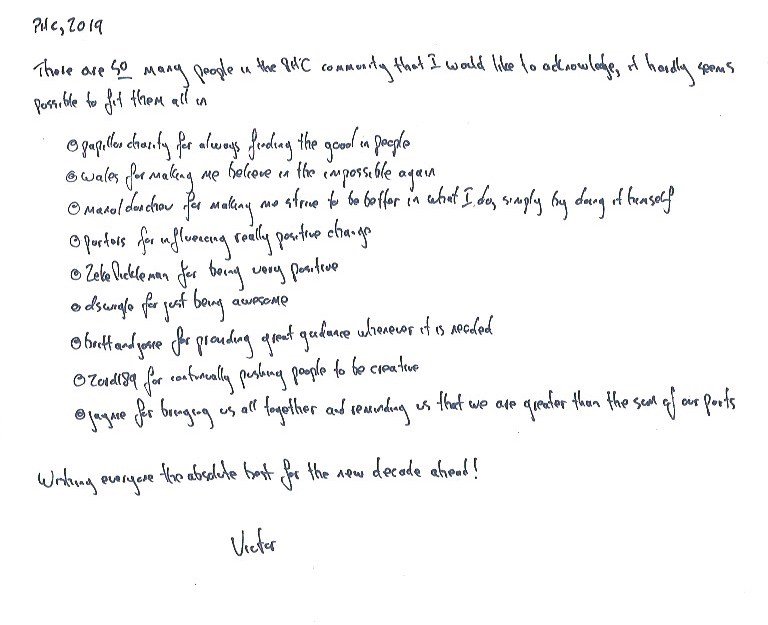 PHC, 2019
There are SO many people in the PHC community that I would like to acknowledge, it hardly seems
possible to fit them all in
papillon charity for always finding the good in people
wales for making me believe in the impossible again
manol donchov for making me strive to be better in what I do, simply by doing it himself
for influencing really positive change
Zeke Pickleman for being very positive
for just being awesome
for providing great guidance whenever it is needed
for continually pushing people to be creative
jayme for bringing us all together and reminding us that we are greater than the sum of our parts
Wishing everyone the absolute best for the new decade ahead!
Victor